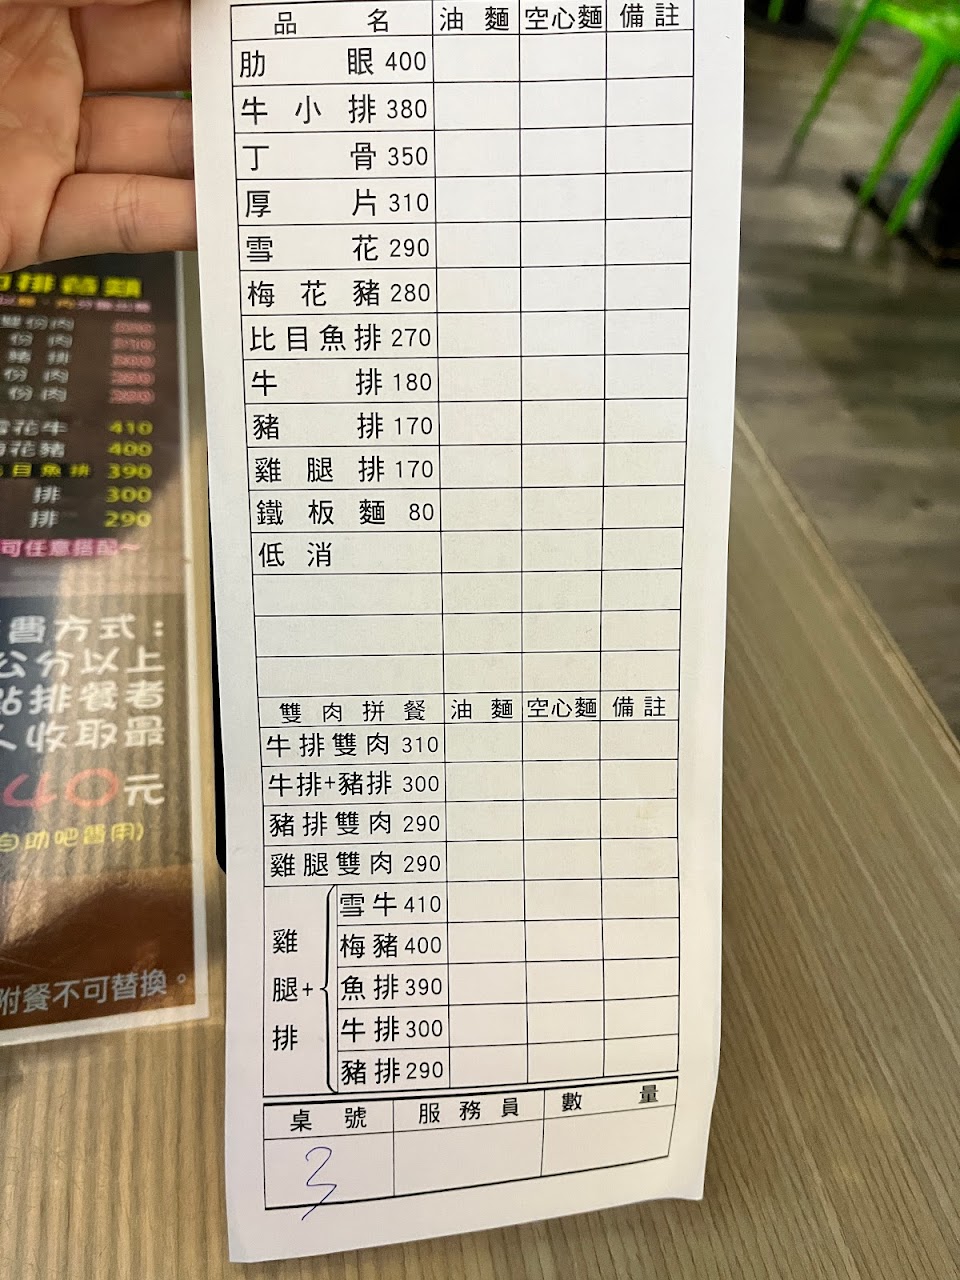 品 名 油 麵 空心麵 備 註
肋 眼 400
牛 小 排 380
丁 骨 350
厚 片 310
雪 花 290
梅 花 豬 280
比目魚排 270
牛 排 180
豬 排 170
雞 腿 排 170
鐵 板 麵 80
低 消
雙 肉 拼 餐 油 麵 空心麵 備 註
牛排雙肉 310
牛排+豬排 300
豬排雙肉 290
雞腿雙肉 290
雞腿+排
雪牛 410
梅豬 400
魚排 390
牛排 300
豬排 290
桌 號 服 務 員 數 量
3
排餐類
雙份肉
份肉
豬排
份肉
份肉
雪花牛 410
花豬 400
目魚排 390
排 300
排 290
可任意搭配~
費方式：
公分以上
點排餐者
收取最
40元
自助吧費用)
附餐不可替換。